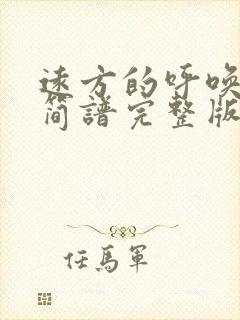 遠方的呼喚
简譜完整版
任馬軍